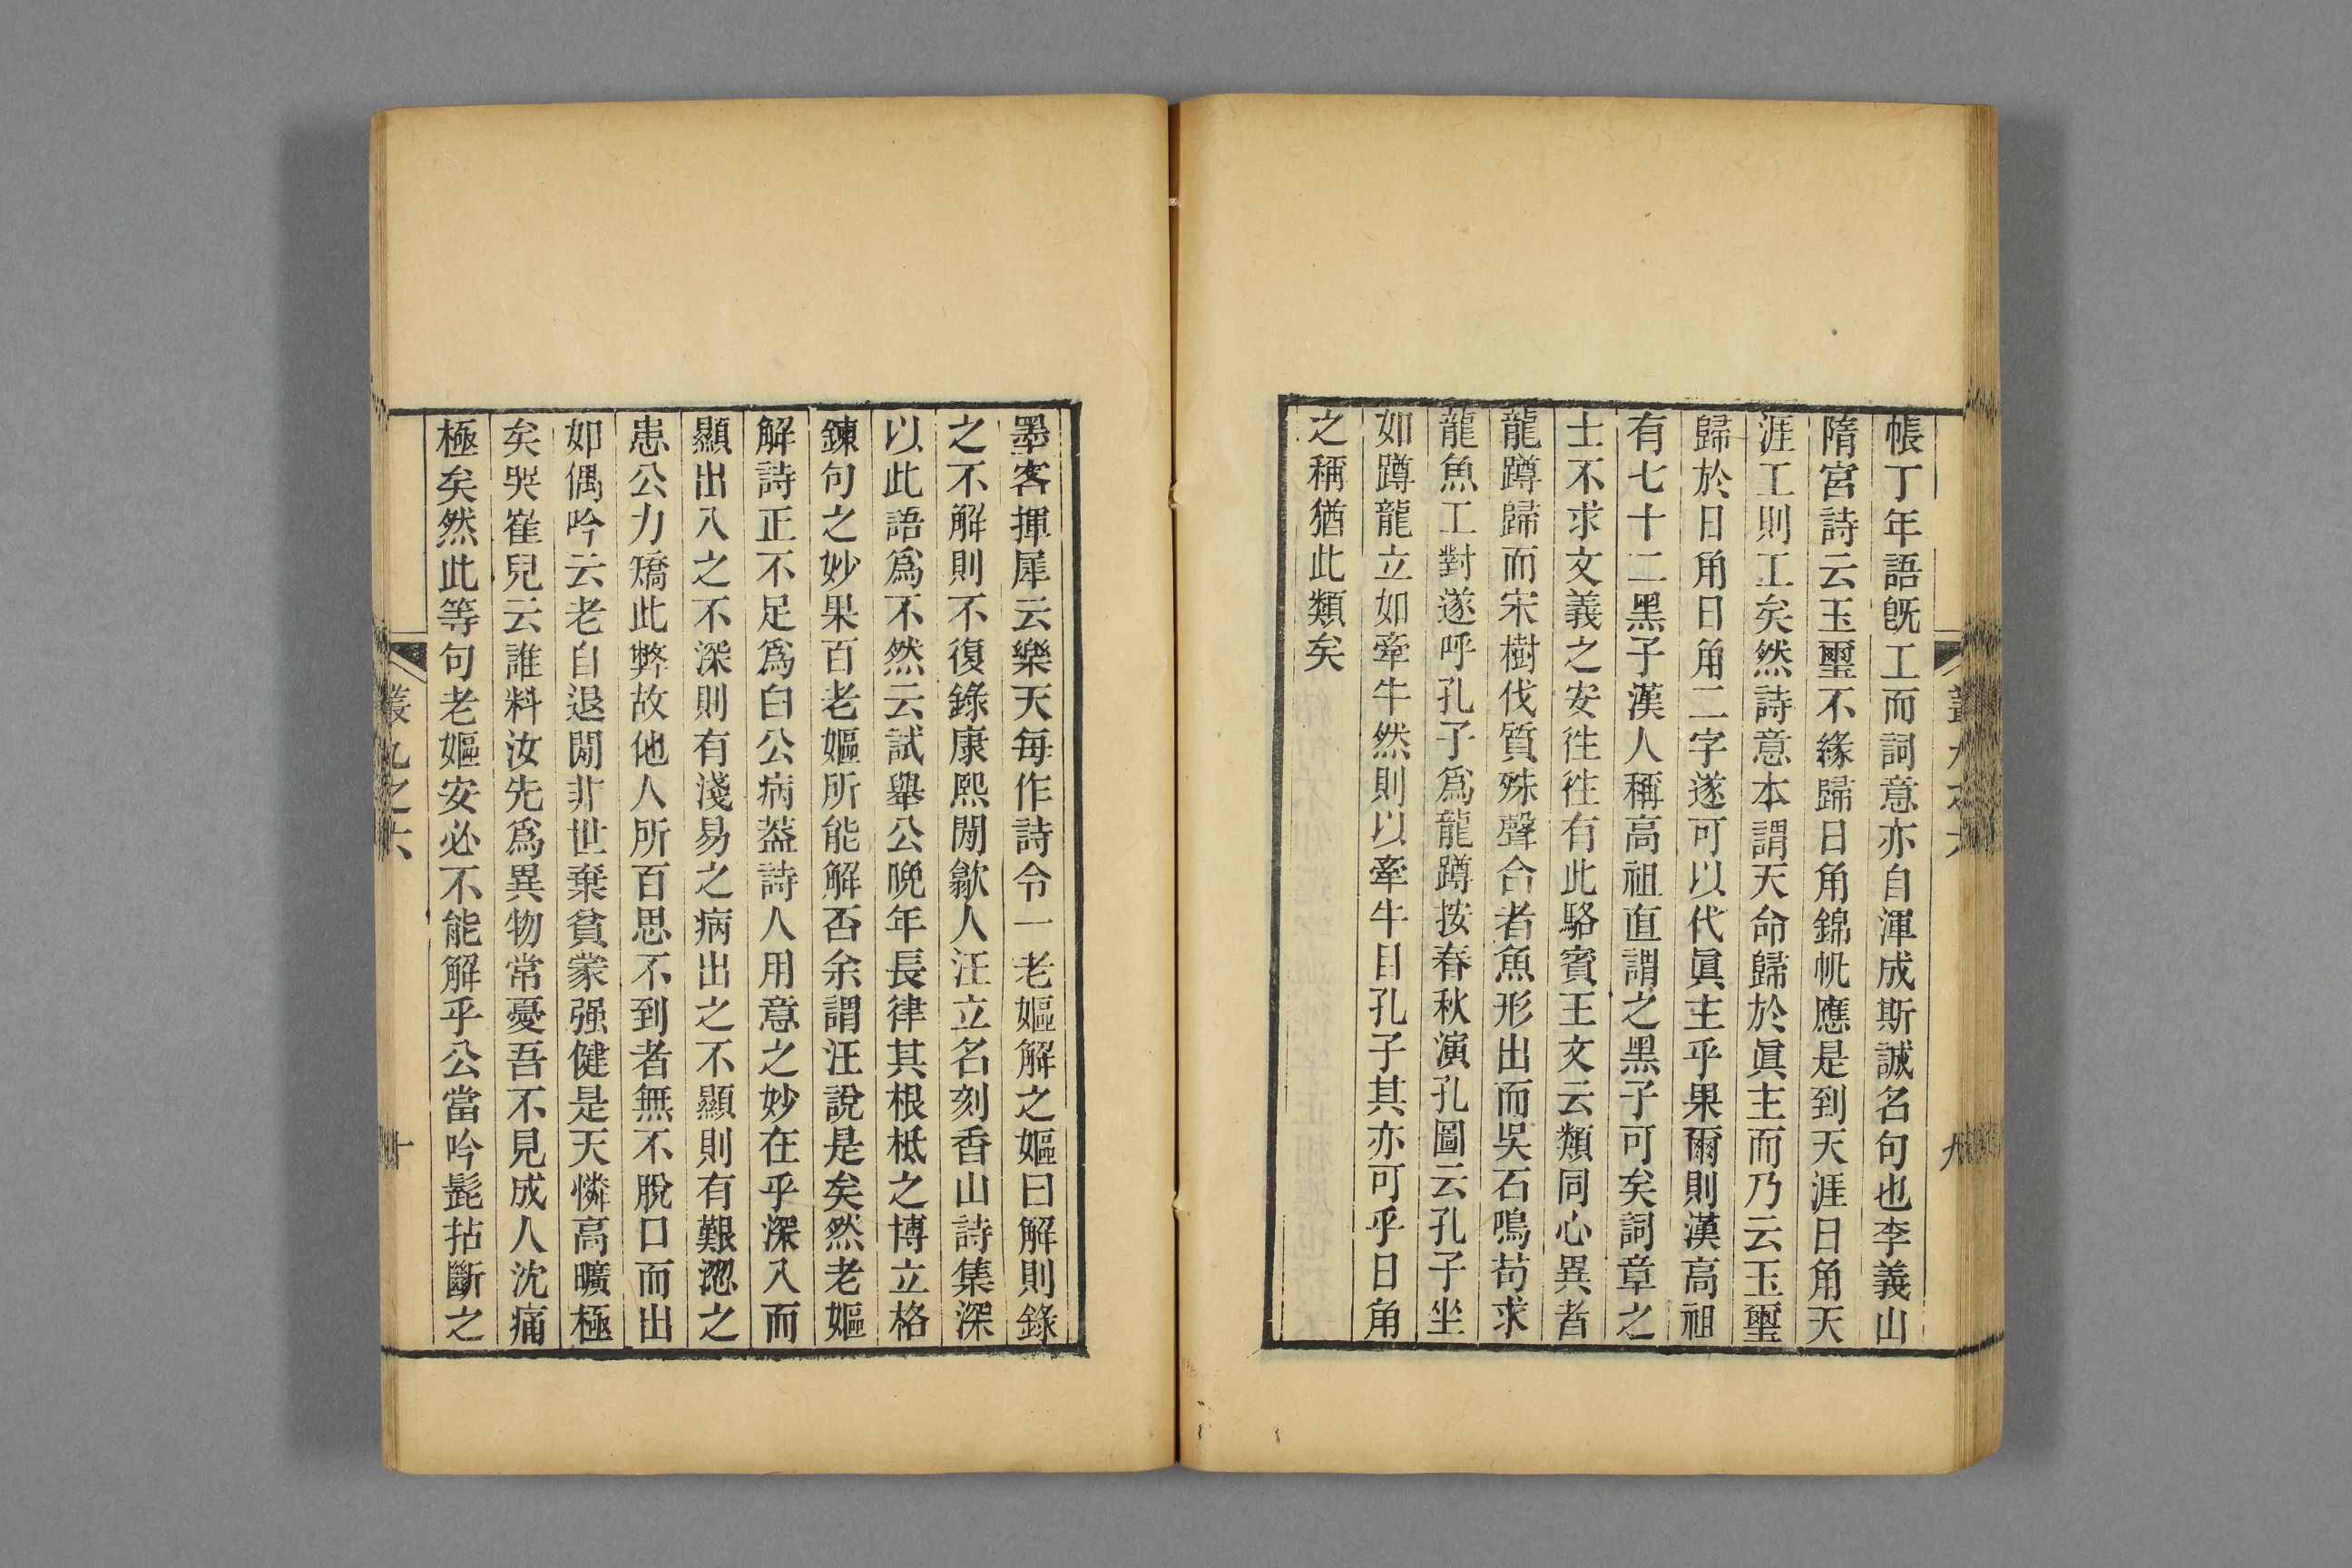 帳丁年語旣工而詞意亦自渾成斯誠名句也李義山
隋宮詩云玉璽不緣歸日角錦帆應是到天涯日角天
涯工則工矣然詩意本謂天命歸於眞主而乃云玉璽
歸於日角日角二字遂可以代眞主乎果爾則漢高祖
有七十二黑子漢人稱高祖直謂之黑子可矣詞章之
士不求文義之安徃徃有此駱賓王文云類同心異者
龍蹲歸而宋樹伐質殊聲合者魚形出而吳石鳴苟求
龍魚工對遂呼孔子爲龍蹲按春秋演孔圖云孔子坐
如蹲龍立如牽牛然則以牽牛目孔子其亦可乎日角
之稱猶此類矣
墨客揮犀云樂天每作詩令一老嫗解之嫗曰解則錄
之不解則不復錄康熙閒歙人汪立名刻香山詩集深
以此語爲不然云試舉公晚年長律其根柢之博立格
鍊句之妙果百老嫗所能解否余謂汪說是矣然老嫗
解詩正不足爲白公病葢詩人用意之妙在乎深入而
顯出入之不深則有淺易之病出之不顯則有艱澀之
患公力矯此弊故他人所百思不到者無不脫口而出
如偶吟云老自退閒非世棄貧蒙强健是天憐高曠極
矣哭崔兒云誰料汝先爲異物常憂吾不見成人沈痛
極矣然此等句老嫗安必不能解乎公當吟髭拈斷之
叢九之六
十